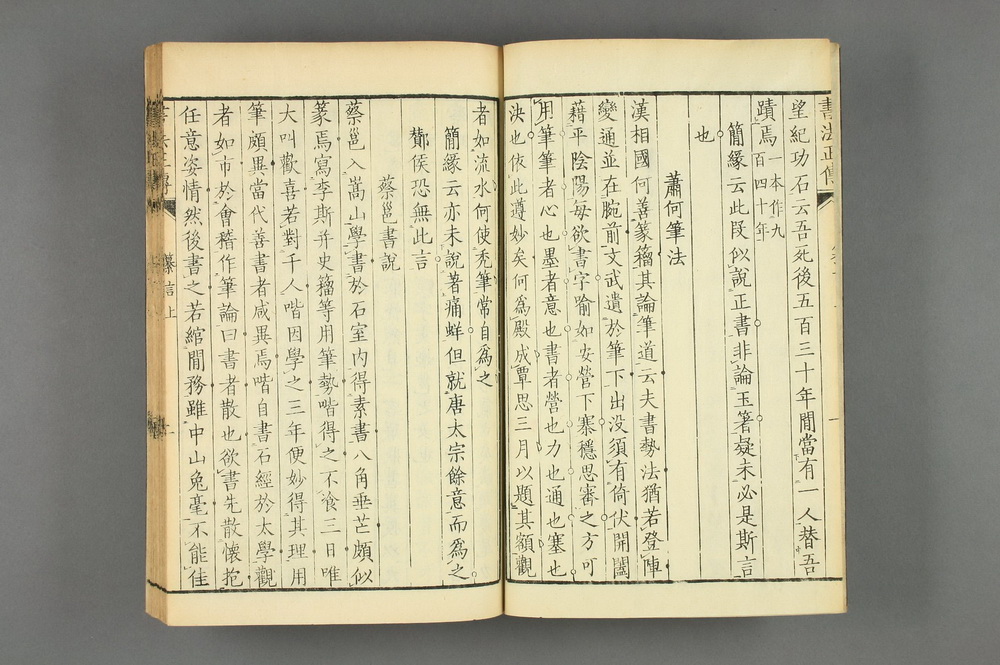 書法正傳
望紀功石云吾死後五百三十年間當有一人替吾
蹟焉一本作九百四十年
簡緣云此段似說正書非論玉箸疑未必是斯言
也
蕭何筆法
漢相國何善篆籀其論筆道云夫書勢法猶若登陣
變通並在腕前文武遺於筆下出沒須有倚伏開闔
藉乎陰陽每欲書字喻如安營下寨穩思審之方可
用筆筆者心也墨者意也書者營也力也通也塞也
決也依此遵妙矣何爲殿成覃思三月以題其額觀
者如流水何使禿筆常自爲之
簡緣云亦未說著痛蛘但就唐太宗餘意而爲之
酇侯恐無此言
蔡邕書說
蔡邕入嵩山學書於石室內得素書八角垂芒頗似
篆焉寫李斯并史籀等用筆勢喈得之不飡三日唯
大叫歡喜若對千人喈因學之三年便妙得其理用
筆頗異當代善書者咸異焉喈自書石經於太學觀
者如市於會稽作筆論曰書者散也欲書先散懷抱
任意姿情然後書之若綰閒務雖中山兔毫不能佳
纂言上